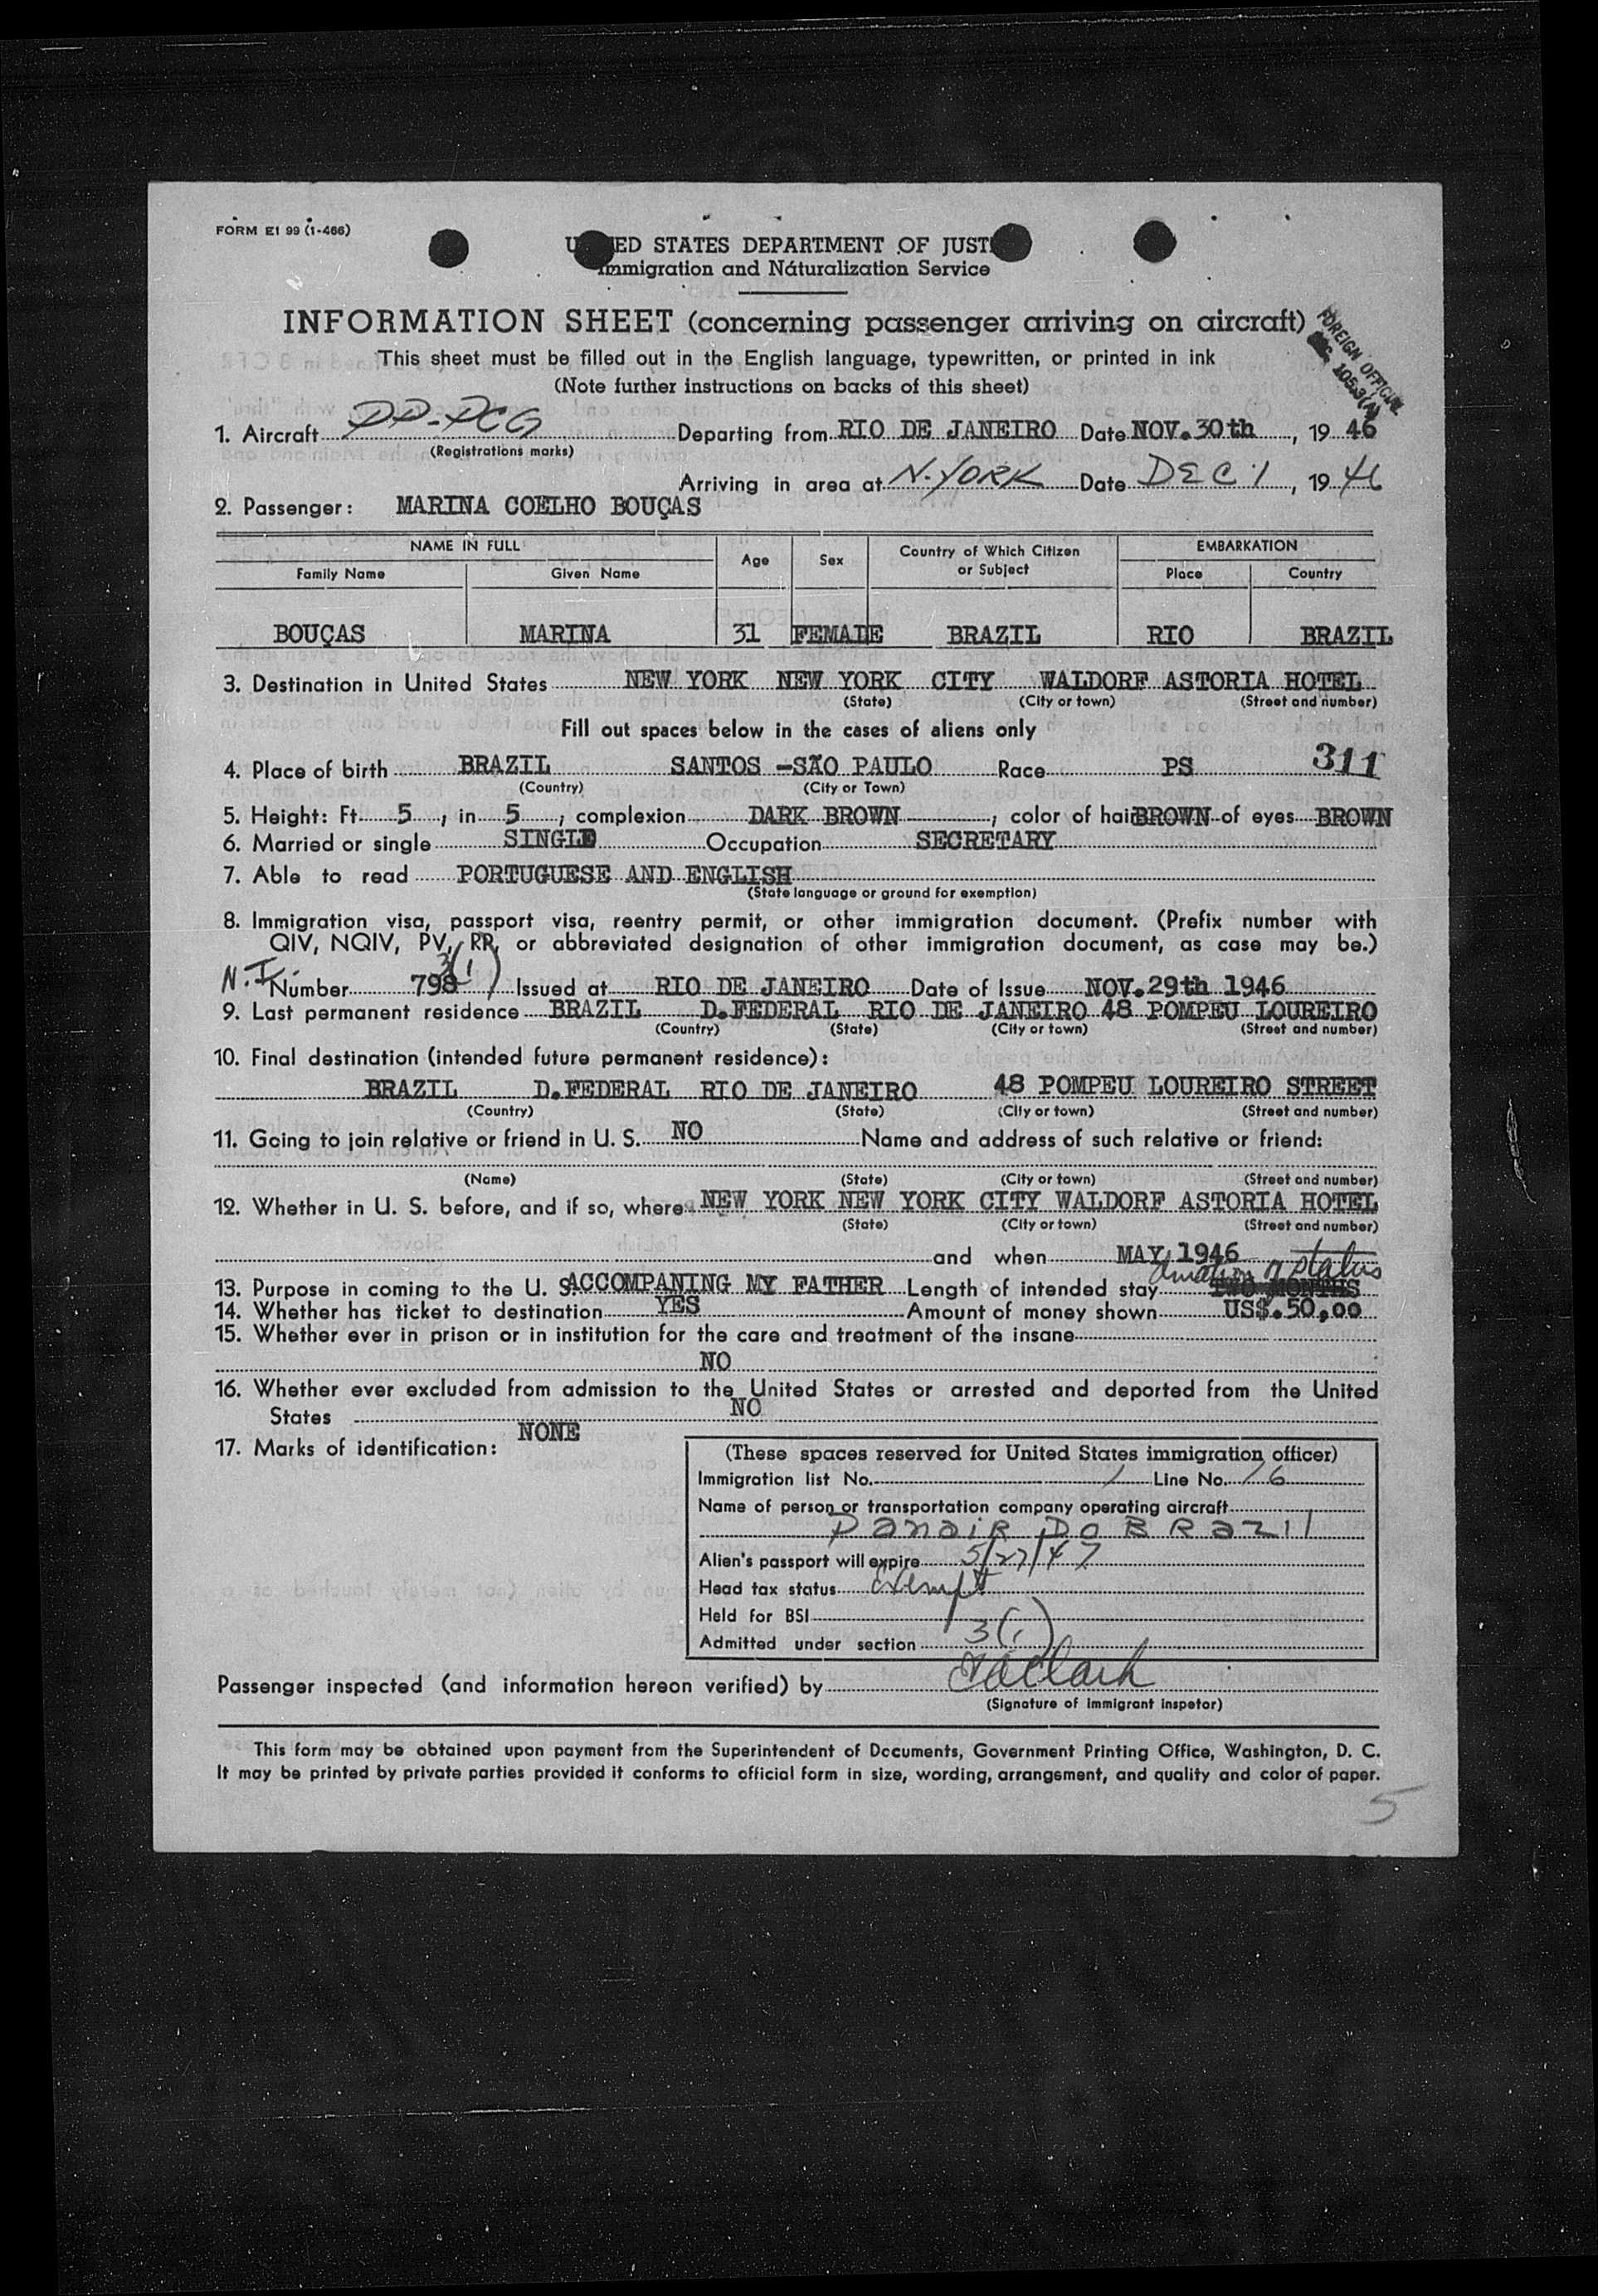 FORM EI 99 (1-466)
UNITED STATES DEPARTMENT OF JUST
Immigration and Naturalization Service
INFORMATION SHEET (concerning passenger arriving on aircraft)
FOREIGN OFFICIAL
SEC. 105.3(A)
This sheet must be filled out in the English language, typewritten, or printed in ink
(Note further instructions on backs of this sheet)
1. Aircraft PP-PCG Departing from RIO DE JANEIRO Date NOV.30th, 19 46
(Registrations marks)
Arriving in area at N.YORK Date DEC 1, 19 46
2. Passenger: MARINA COELHO BOUÇAS
NAME IN FULL Age Sex Country of Which Citizen or Subject EMBARKATION
Family Name Given Name Place Country
BOUÇAS MARINA 31 FEMALE BRAZIL RIO BRAZIL
3. Destination in United States NEW YORK NEW YORK CITY WALDORF ASTORIA HOTEL
(State) (City or town) (Street and number)
Fill out spaces below in the cases of aliens only
311
4. Place of birth BRAZIL SANTOS -SÃO PAULO Race PS
(Country) (City or Town)
5. Height: Ft. 5, in 5, complexion DARK BROWN, color of hair BROWN of eyes BROWN
6. Married or single SINGLE Occupation SECRETARY
7. Able to read PORTUGUESE AND ENGLISH
(State language or ground for exemption)
8. Immigration visa, passport visa, reentry permit, or other immigration document. (Prefix number with
QIV, NQIV, PV, RP, or abbreviated designation of other immigration document, as case may be.)
N.I. Number 798 3(1) Issued at RIO DE JANEIRO Date of Issue NOV.29th 1946
9. Last permanent residence BRAZIL D.FEDERAL RIO DE JANEIRO 48 POMPEU LOUREIRO
(Country) (State) (City or town) (Street and number)
10. Final destination (intended future permanent residence):
BRAZIL D.FEDERAL RIO DE JANEIRO 48 POMPEU LOUREIRO STREET
(Country) (State) (City or town) (Street and number)
11. Going to join relative or friend in U. S. NO Name and address of such relative or friend:
(Name) (State) (City or town) (Street and number)
12. Whether in U. S. before, and if so, where NEW YORK NEW YORK CITY WALDORF ASTORIA HOTEL
(State) (City or town) (Street and number)
and when MAY 1946
duration of status
13. Purpose in coming to the U. S. ACCOMPANING MY FATHER Length of intended stay TWO MONTHS
14. Whether has ticket to destination YES Amount of money shown US$.50,00
15. Whether ever in prison or in institution for the care and treatment of the insane
NO
16. Whether ever excluded from admission to the United States or arrested and deported from the United
States NO
17. Marks of identification: NONE
(These spaces reserved for United States immigration officer)
Immigration list No. 1 Line No. 16
Name of person or transportation company operating aircraft
Panair Do Brazil
Alien's passport will expire 5/27/47
Head tax status Exempt
Held for BSI
Admitted under section 3(1)
Passenger inspected (and information hereon verified) by Clark
(Signature of immigrant inspetor)
This form may be obtained upon payment from the Superintendent of Documents, Government Printing Office, Washington, D. C.
It may be printed by private parties provided it conforms to official form in size, wording, arrangement, and quality and color of paper.
5